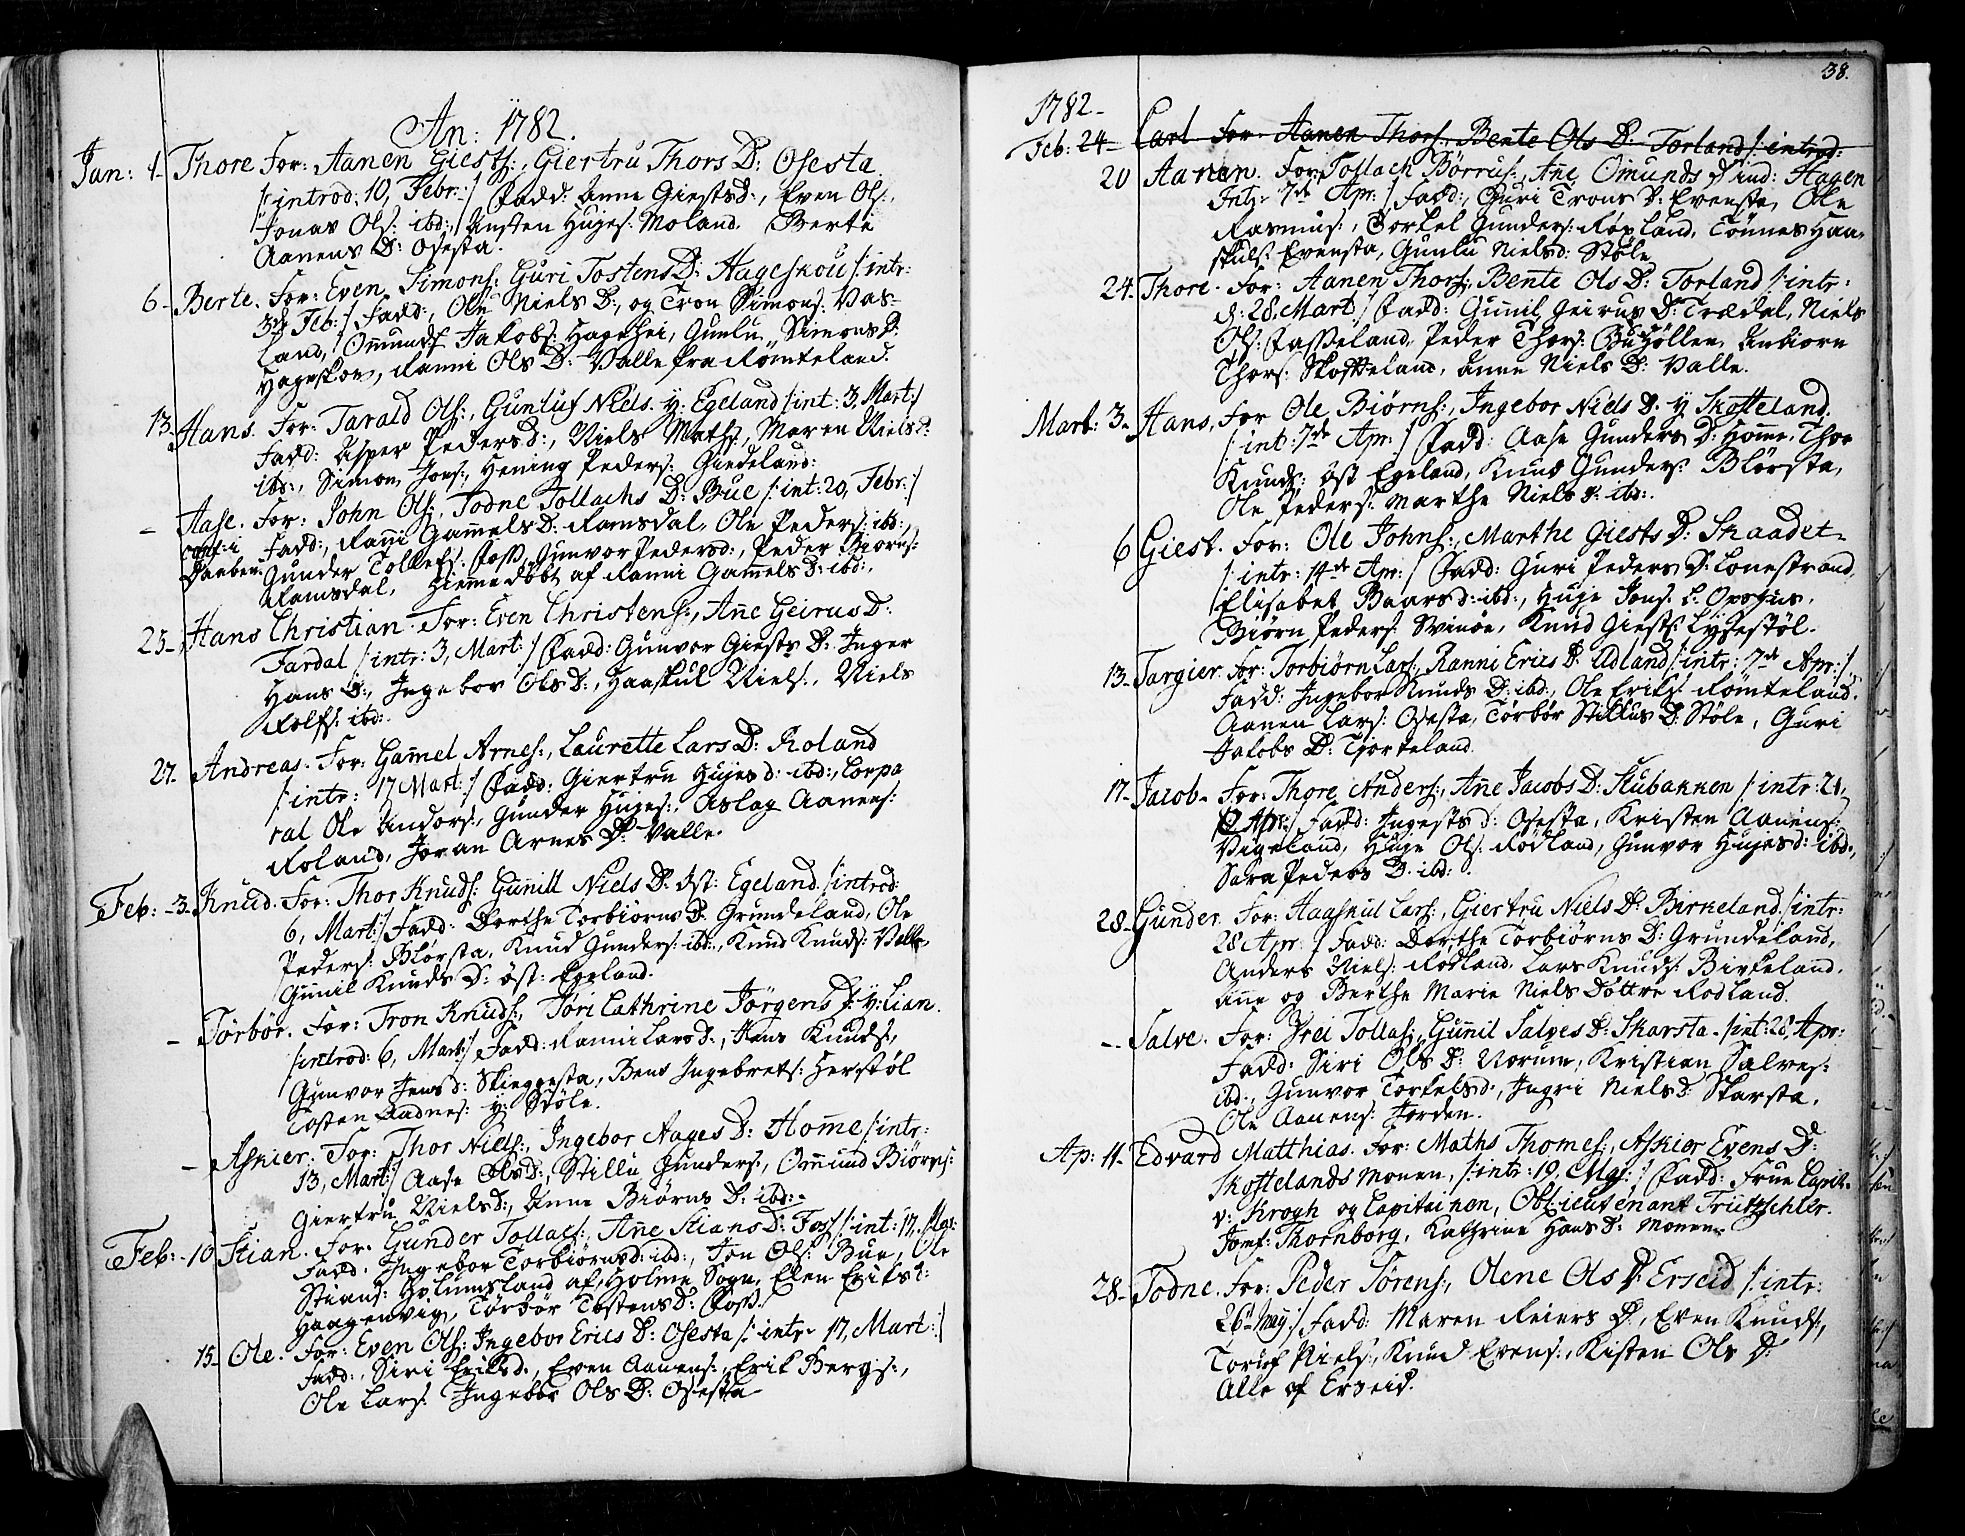 An: 1782.
Jan: 1- Thore For: Aanen Giests:, Giertru Thors D: Osesta
/: introd: 10, Febr:/ Fadd: Anne Giests D:, Even Ols:,
Jonas Ols: ibd:, Austen Hujes: Moland. Berte
Aanens D: Osesta.
6- Berte. For: Even Simons: Guri Tostens D: Hageskou /: intr:
3die Feb:/ Fadd:, Ole Niels D:, og Tron Simons: Vas-
land, Omund Jakobs: Haghei, Gunlu Simons D:
Hageskou, Ranni Ols D: Valle fra Römteland.
13. Hans. For: Tarald Ols:, Gunluf Niels. y: Egeland /: int: 3, Mart:/
Fadd: Asper Peders d:, Niels Maths:, Maren Niels D:
ibd:, Simon Jons:, Hening Peders: Giedeland:
- Aase. For: John Ols:, Todne Tollachs D: Bue /: int: 20, Febr:/
Fadd:, Rani Gamels D: Ramsdal, Ole Peders: ibd:,
Gunder Tollefs: Foss, Gunvor Peders d:, Peder Biorns:
Ramsdal, Hiemmedöbt af Ranni Gamels D: ibd:.
25- Hans Christian. For: Even Christens:, Ane Geirus D:
Fardal /: intr: 3, Mart:/ Fadd: Gunvor Giests D: Inger
Hans D:, Ingebor Ols D:, Haaskul Niels:, Niels
Rolfs: ibd:.
27. Andreas. For: Gamel Arnes:, Laurette Lars D: Roland
/: intr: 17 Mart:/ Fadd: Giertru Hujes d: ibd:, Corpo
ral Ole Anders:, Gunder Hujes:, Aslag Aanens:
Roland, Joran Arnes D: Valle.
Feb: -3. Knud. For: Thor Knuds: Gunill Niels D: öst: Egeland. /: introd:
6, Mart:/ Fadd: Dorthe Torbiörns D: Grundeland, Ole
Peders: Blörsta, Knud Gunders: ibd:, Knud Knuds: Valle
Gunil Knuds D: öst: Egeland.
- Törbör. For: Tron Knuds:, Töri Cathrine Jörgens D: y: Lian.
/: introd: 6, Mart:/ Fadd: Ranni Lars D:, Hans Knuds:,
Gunvor Jens d: Skieggesta, Bens Ingebrets: Herstöl
Tosten Aadnes: y: Stöle.
- Askier. For: Thor Niels:, Ingebor Aages D: Home /: intr:
13, Mart:/ Aase Ols D:, Stillu Gunders:, Omund Biörns:
Giertru Niels d:, Anne Biörns D: ibd:.
Feb: - 10. Stian. For: Gunder Tollas:, Ane Stians D: Foss /: int: 17, Mar:
Fadd: Ingebor Torbiörns d: ibd:, Jon Ols: Bue, Ole
Stians: Holumsland af Holme Sogn, Elen Eriks d:
Haagenvig, Törbör Tostens D: Foss.
15- Ole. For: Even Ols: Ingebor Erics D: Osesta /: intr- 17, Mart:/
Fadd:, Siri Eriks d:, Even Aanens:, Erik Bergs:,
Ole Lars: Ingebor Ols D: Osesta
38.
1782-
Feb: 24- Carl For: Aanen Thors: Bente Ols D: Torland /: introd:
20 Aanen. For: Tollach Börrus:, Ane Omunds d ind: Hagen
Intr: 7de Apr:/ Fadd:, Guri Trons D: Evensta, Ole
Rasmus:, Torkel Gunders: Röyland, Tönnes Haa-
skuls: Evensta, Gunlu Niels d: Stöle
24- Thore. For: Aanen Thors:, Bente Ols D: Torland /: intr:
d: 28 Mart:/ Fadd: Gunil Geirus D: Trædal, Niels
Ols: Fasseland, Peder Thors: Buhöllen, Anbiorn
Thors: Skofteland, Anne Niels D: Valle.
Mart: 3- Hans. For Ole Biörns:, Ingebor Niels D: y Skofteland.
/: int: 7de Apr:/ Fadd: Aase Gunders D: Home, Thor
Knuds: öst Egeland, Knud Gunders: Blörsta,
Ole Peders: Marthe Niels d: ibd:.
6 Giest. For: Ole Johns:, Marthe Giests D: Skaadet-
/: intr: 14de Apr:/ Fadd: Guri Peders D: Lonestrand,
Elisabet Baars d: ibd:, Huge Jons:
Biörn Peders: Svinöe, Knud Giests: Lysestöl.
13- Targier. For: Torbiörn Lars:, Ranni Erics D: Udland /: intr: 7de Apr:/
Fadd: Ingebor Knuds D: ibd:, Ole Eriks: Römteland.
Aanen Lars: Osesta, Törbör Stillus D: Stöle, Guri
Jakobs D: Tjorteland.
17- Jacob- For: Thore Anders:, Ane Jacobs D: Stubakken /: intr: 21,
Apr:/ Fadd: Ingests d: Osesta, Kristen Aanens:
Vigeland, Huge Ols: Rödland, Gunvor Hujes d: ibd:,
Sara Peders D: ibd:.
28- Gunder. For: Haaskul Lars:, Giertru Niels D: Birkeland. /: intr:
28 Apr:/ Fadd: Dorthe Torbiörns D: Grundeland,
Anders Niels: Rödland, Lars Knuds: Birkeland.
Ane og Berthe Marie Niels Döttre Rodland.
- Salve. For: Drei Tollas:, Gunil Salves D: Skarsta- /: int: 28, Apr:
Fadd: Siri Ols D: Norum, Kristian Salves:
ibd:, Gunvor Torkels d:, Ingri Niels d: Skarsta.
Ole Aanens: Jorden.
Ap: 11- Edvard Matthias. For: Maths Thomes:, Askier Evens D:
Skoftelands Monen, /: intr: 19, Maj:/ Fadd: Frue Capit:
v: Krogh og Capitainen, Ob:Lieutenant Trützschler.
Jomf: Thornborg, Kathrine Hans d: Monen.
28- Todne. For: Peder Sörens:, Olene Ols D: Erseid /: intr:
26 May:/ Fadd: Maren Reiers D:, Even Knuds:,
Toruf Niels:, Knud Evens:, Kisten Ols D:
Alle af Erseid.